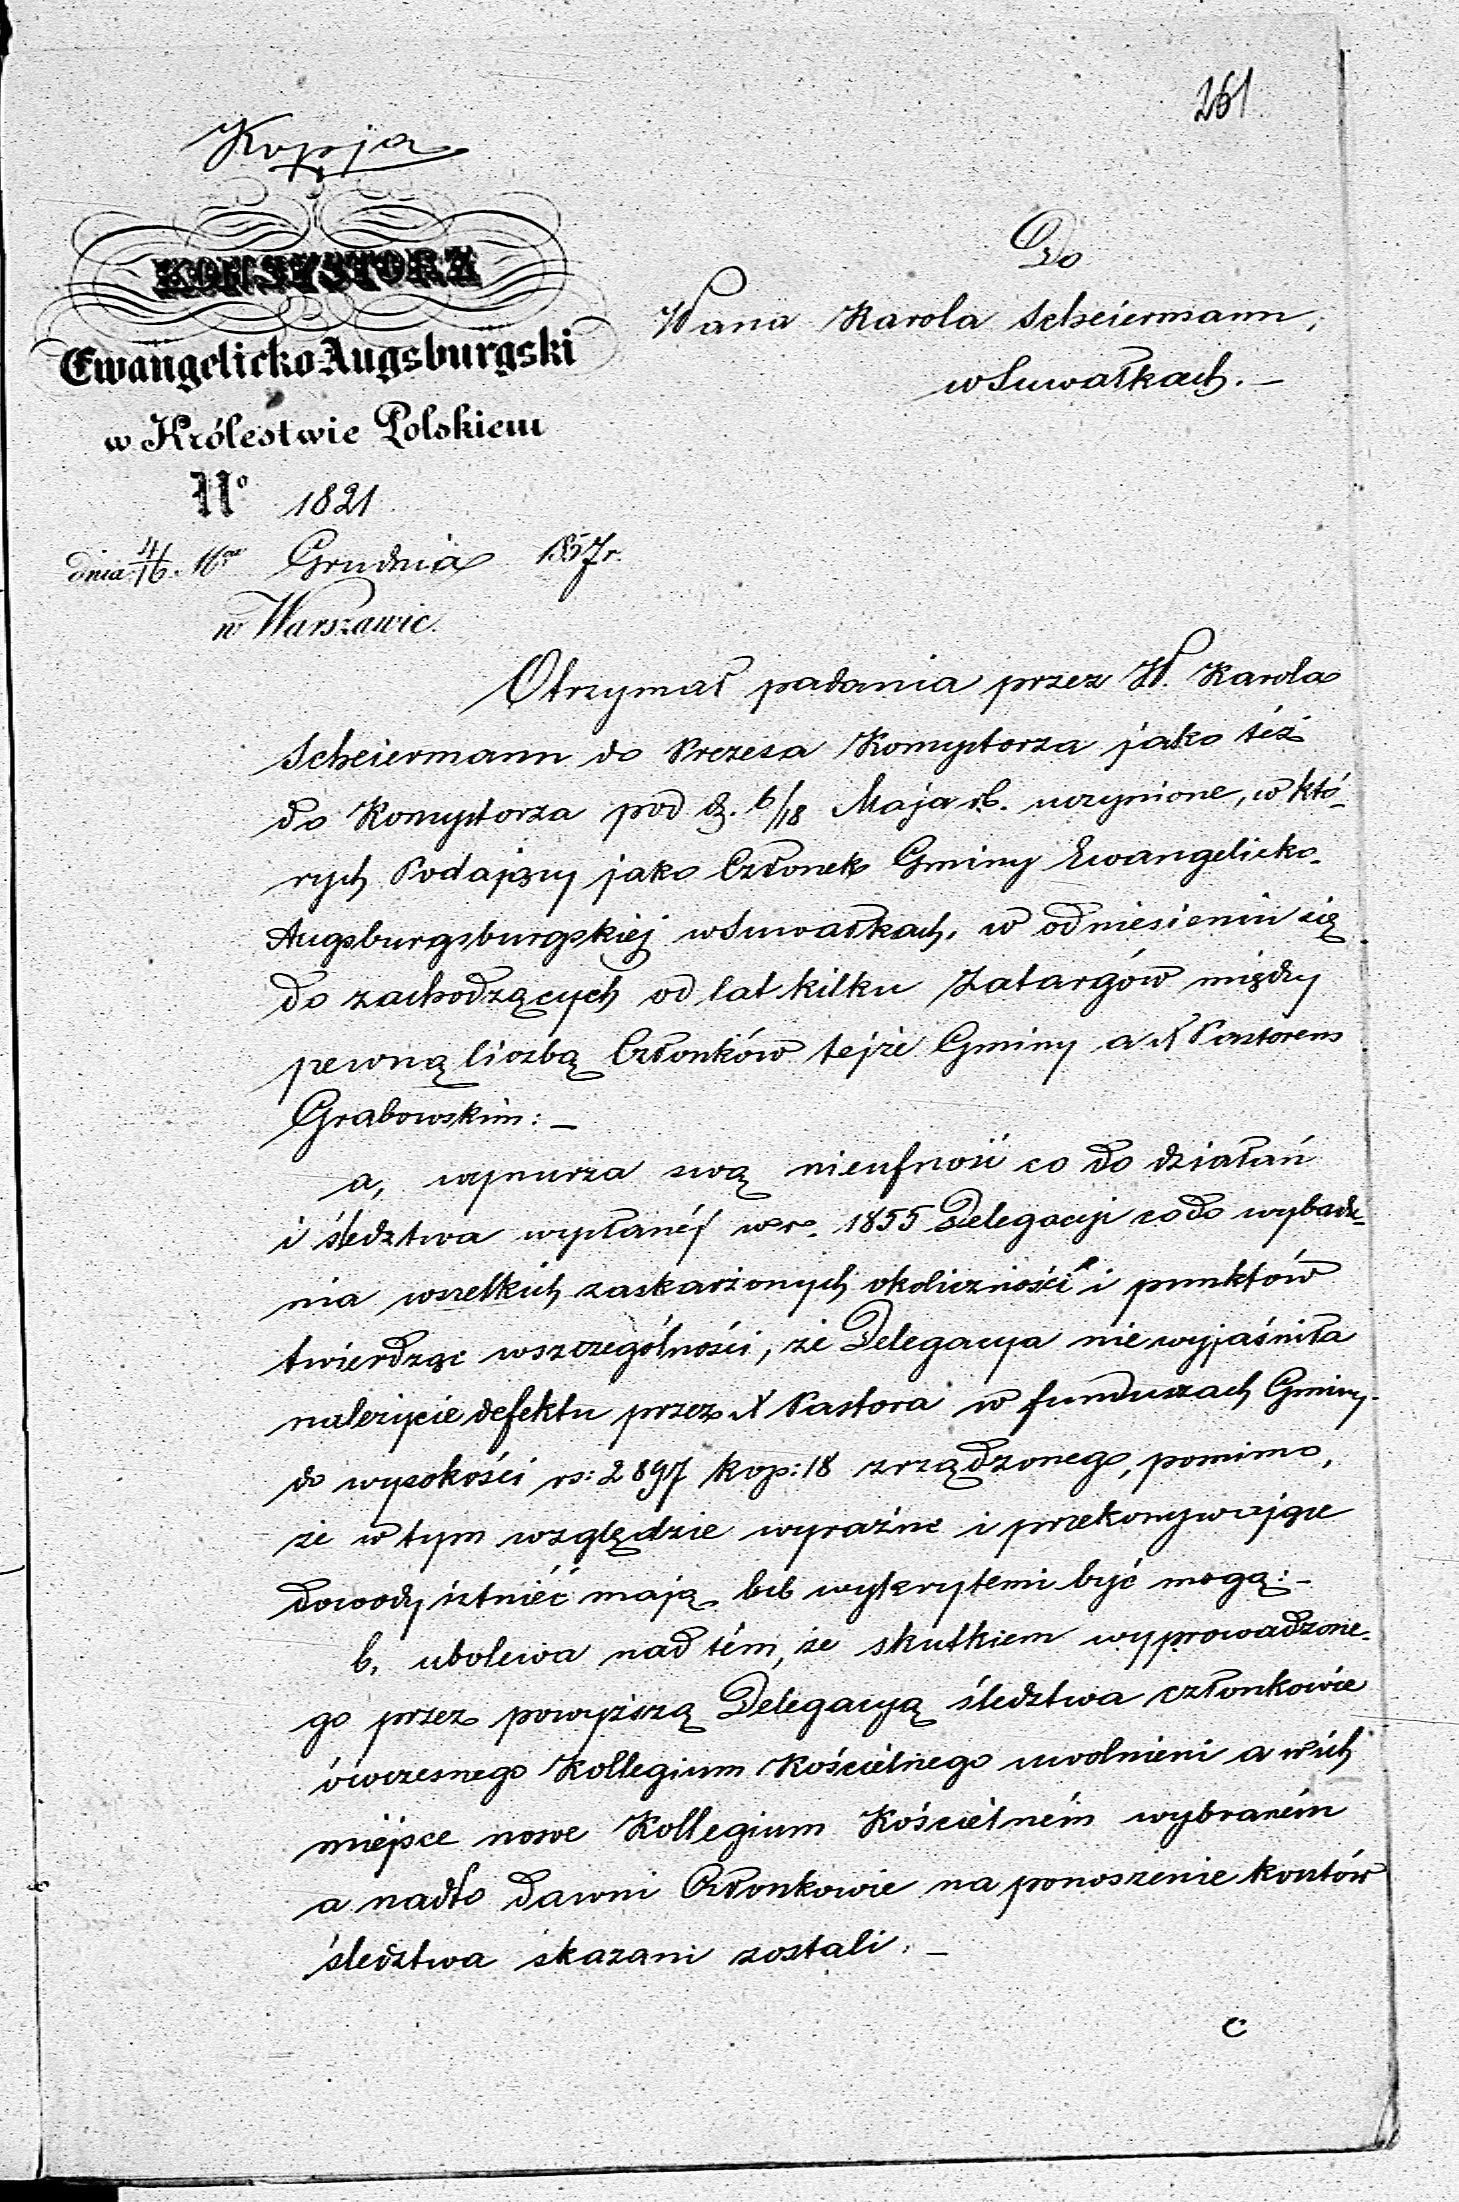 261
Kopja
KONSYSTORZ
Ewangelicko Augsburgski
w Królestwie Polskiem
No 1821
dnia 4/16 Grudnia 1857 r.
w Warszawie.
Do
Wana Karola Scheiermann,
w Suwałkach. –
Otrzymał podania przez W. Karola
Scheiermann do Prezesa Konsystorza jako też
do Konsystorza pod d. 6/18 Maja rb. uczynione, w któ-
rych Podający jako Członek Gminy Ewangelicko-
Augsburgsburgskiej w Suwałkach, w odniesieniu się
do zachodzących od lat kilku Zatargów między
pewną liczbą Członków tejże Gminy a X Pastorem
Grabowskim: –
a, wynurza swą nieufność co do działań
i śledztwa wysłanéj w r. 1855 Delegacji co do wybada-
nia wszelkich zaskarżonych okoliczności i punktów
twierdząc w szczególności, że Delegacya nie wyjaśniła
należycie defektu przez X Pastora w funduszach Gminy
do wysokości rs: 2897 kop: 18 zrządzonego, pomimo,
że w tym względzie wyraźne i przekonywające
dowody istnieć mają lub wykrytemi być mogą: –
b, ubolewa nad tém, że skutkiem wyprowadzone-
go przez powyższą Delegacyą śledztwa członkowie
ówczesnego Kollegium Kościelnego uwolnieni a w ich
miejsce nowe Kollegium Kościelném wybraném
a nadto dawni Członkowie na ponoszenie kosztów
śledztwa skazani zostali. –
c